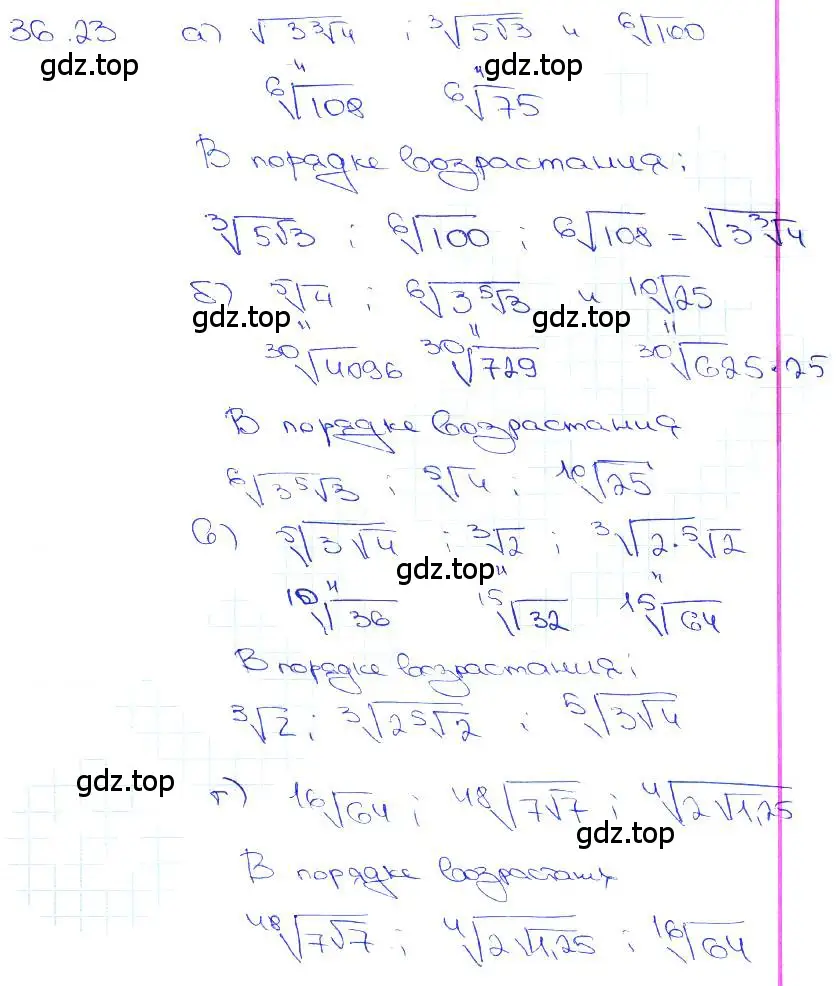 36.23 а) √(3∛4) ; ∛(5√3) и ⁶√100
gdz.top gdz.top
" "
⁶√108 ⁶√75
В порядке возрастания:
∛(5√3) ; ⁶√100 ; ⁶√108 = √(3∛4)
б) ⁵√4 ; ⁶√(3⁵√3) и ¹⁰√25
gdz.top gdz.top
" " "
³⁰√4096 ³⁰√729 ³⁰√625·25
В порядке возрастания
⁶√(3⁵√3) ; ⁵√4 ; ¹⁰√25
в) ⁵√(3√4) ; ∛2 ; ∛(2·⁵√2)
gdz.top
" " "
¹⁰√36 ¹⁵√32 ¹⁵√64
В порядке возрастания;
∛2 ; ∛(2⁵√2) ; ⁵√(3√4)
gdz.top
г) ¹⁶√64 ; ⁴⁸√(7√7) ; ⁴√(2√1,25)
gdz.top
В порядке возрастани
⁴⁸√(7√7) ; ⁴√(2√1,25) ; ¹⁶√64